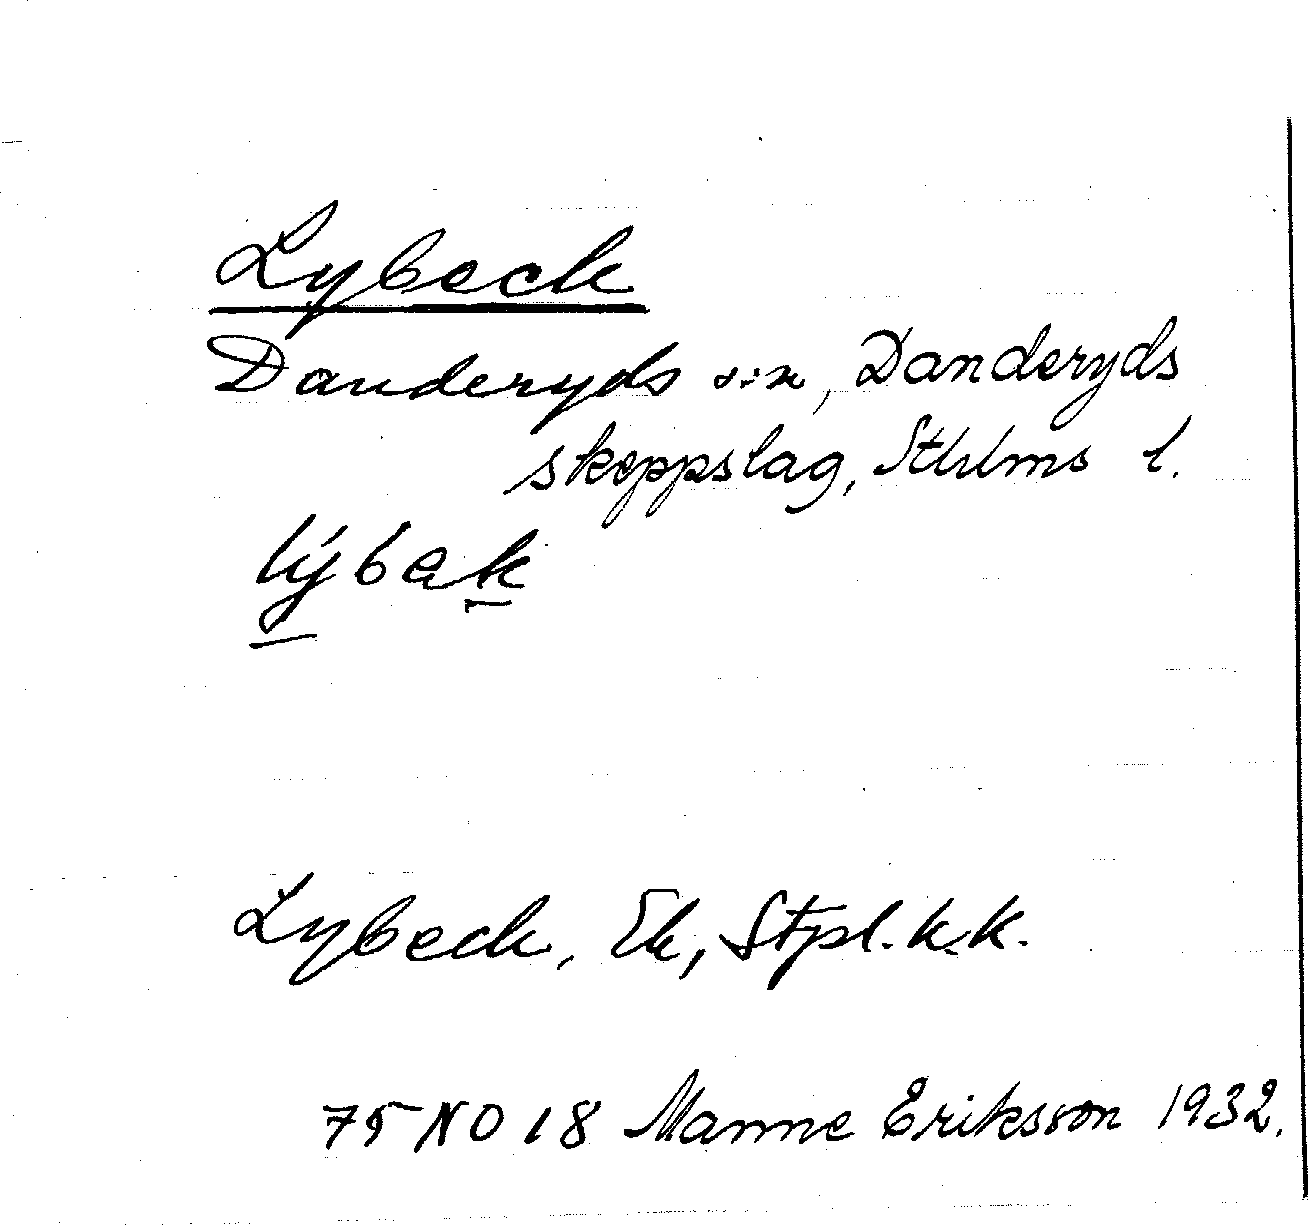 Lybeck
Danderyds sn, Danderyds
skeppslag, Sthlms l.
lýbek
Lybeck, Ek, Stpl. k.k.
75 NO 18 Manne Eriksson 1932.